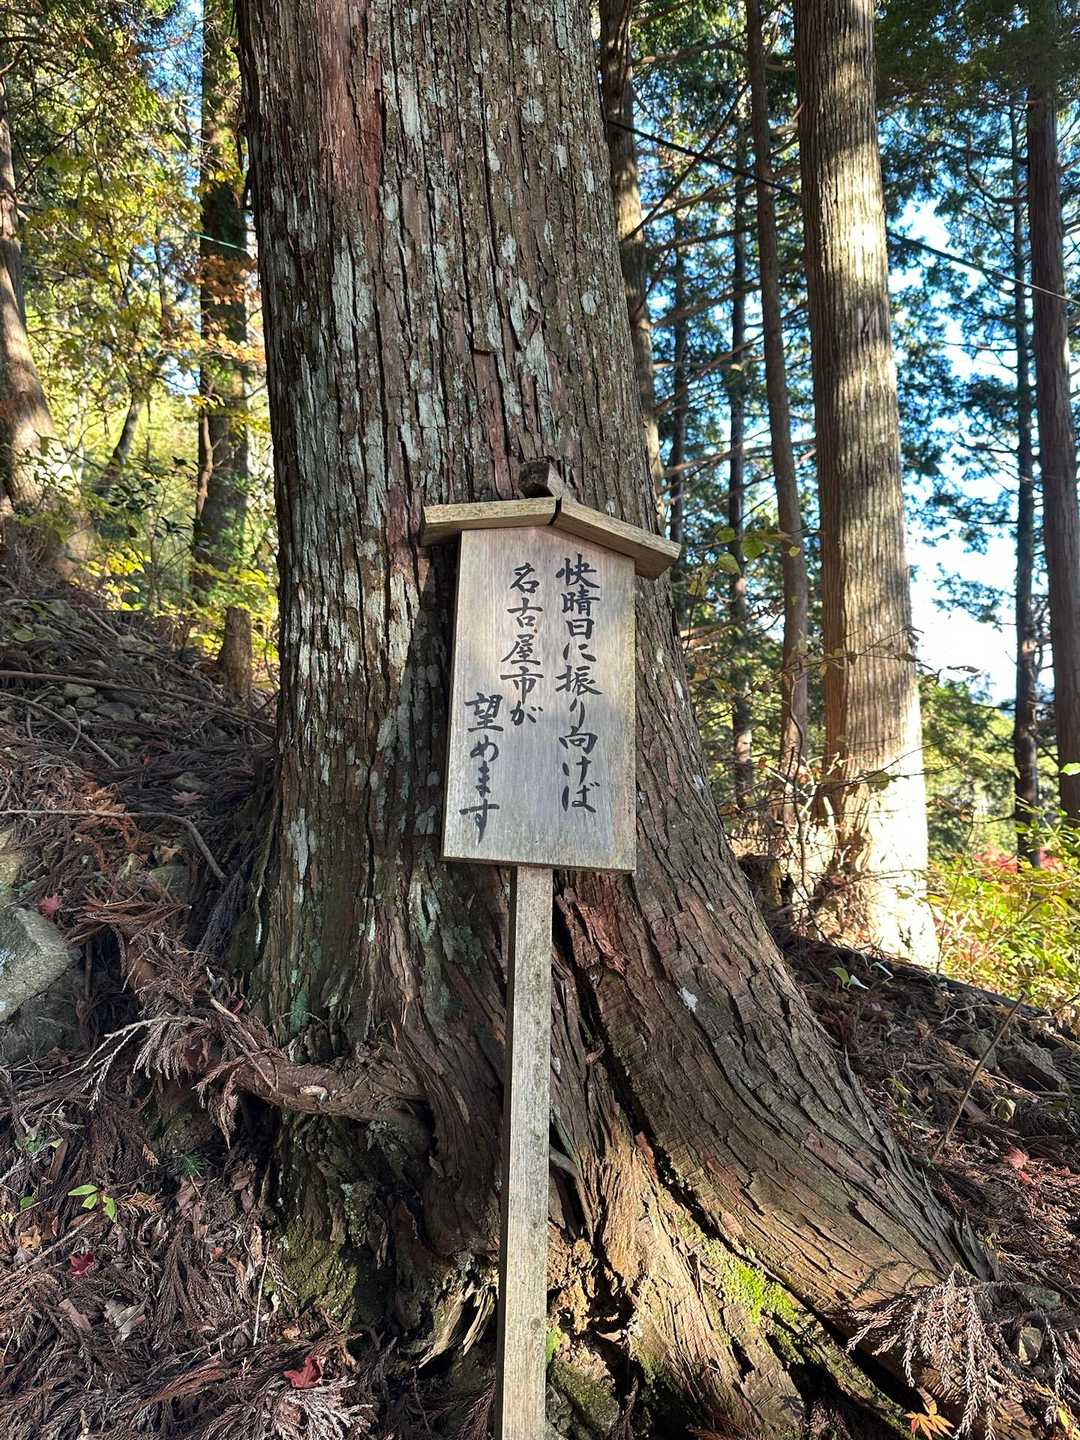 快晴日に振り向けば
名古屋市が
望めます